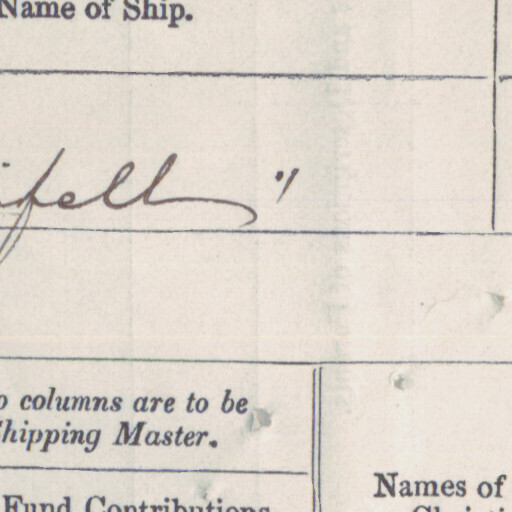 Name of Ship.
columns are to be
Shipping Master.
Fund Contributions
Names of